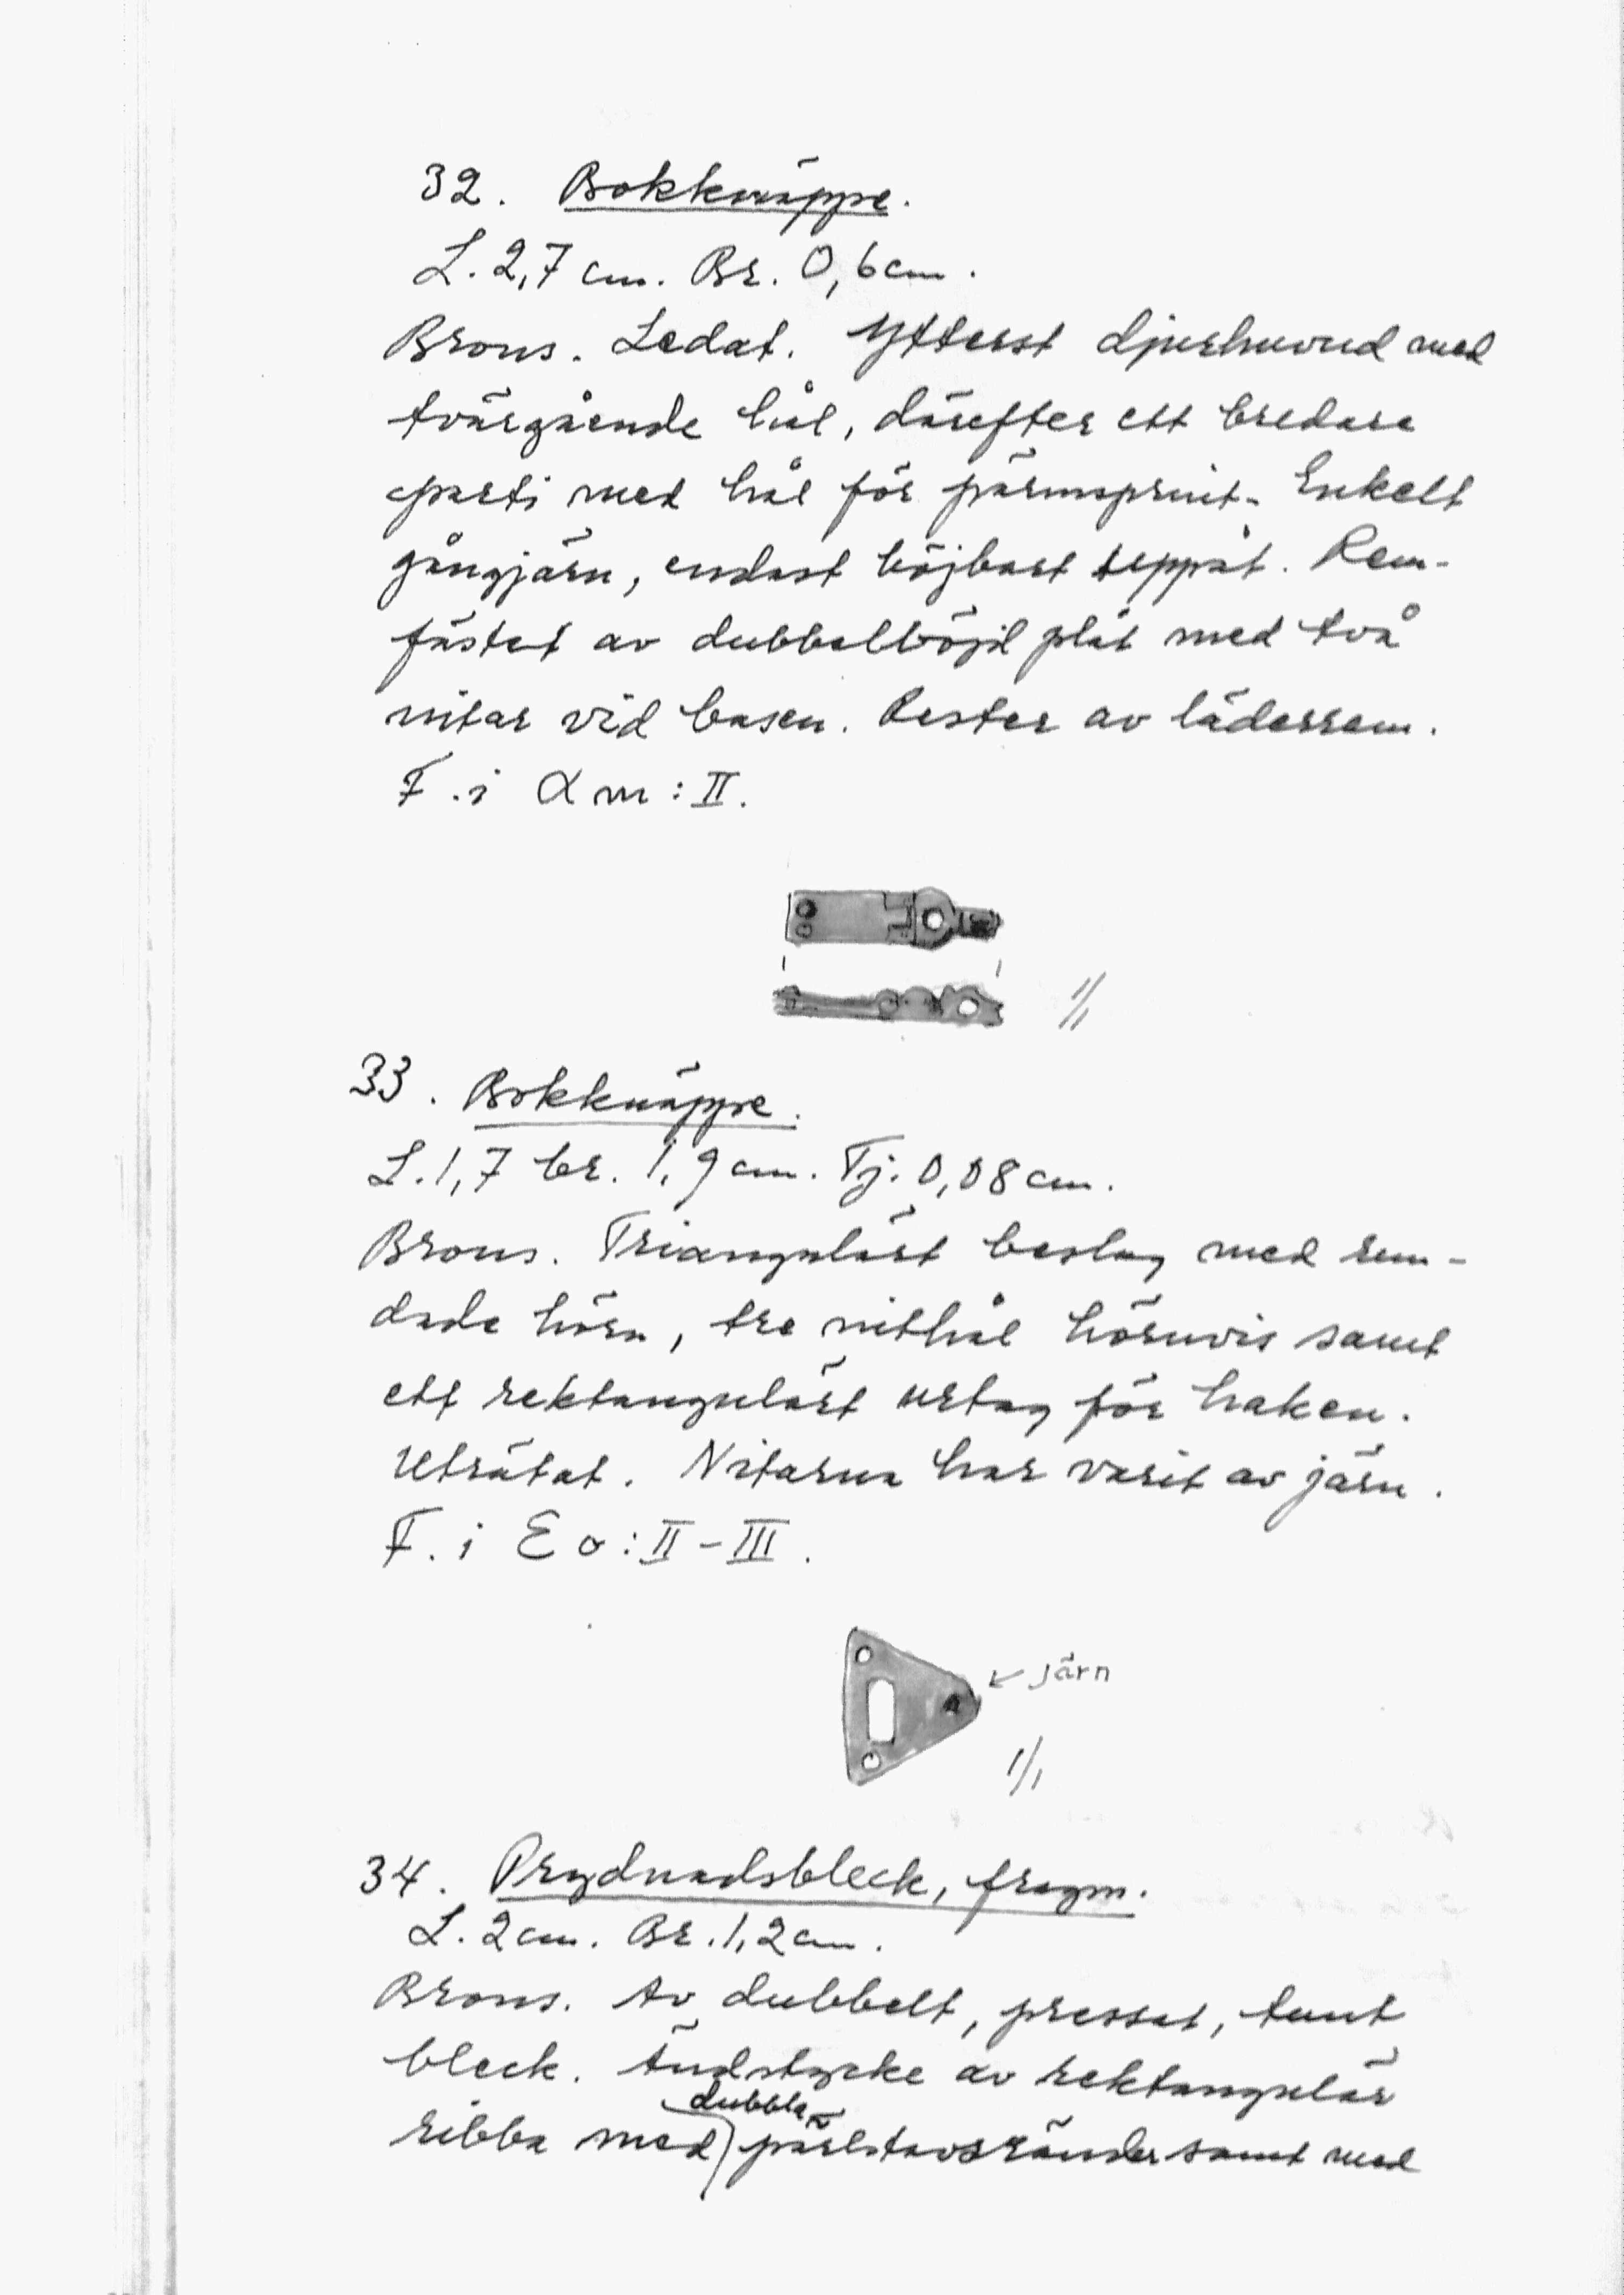 32. Bokknäppe.
L. 2,7 cm. Br. 0,6 cm.
Brons. Ledat. Ytterst djurhuvud med
tvärgående hål, därefter ett bredare
parti med hål för pärmsprint. Enkelt
gångjärn, endast böjbart uppåt. Rem-
fästet av dubbelböjd plåt med två
nitar vid basen. Rester av läderrem.
F. i α m: II.
1/1
33. Bokknäppe.
L. 1,7 br. 1,9 cm. Tj. 0,08 cm.
Brons. Triangulärt beslag med run-
dade hörn, tre nithål hörnvis samt
ett rektangulärt urtag för haken.
Uträtat. Nitarna har varit av järn.
F. i E o: II-III.
järn
1/1
34. Prydnadsbleck, fragm.
L. 2 cm. Br. 1,2 cm.
Brons. Av dubbelt, pressat, tunt
bleck. Ändstycke av rektangulär
dubbla
ribba med pärlstavsränder samt med